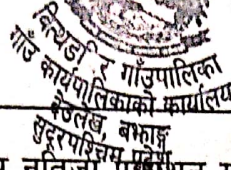 बित्थडचिर गाउँपालिका
गाउँ कार्यपालिकाको कार्यालय
देउलेख, बझाङ्ग
सुदूरपश्चिम प्रदेश
नतिजा